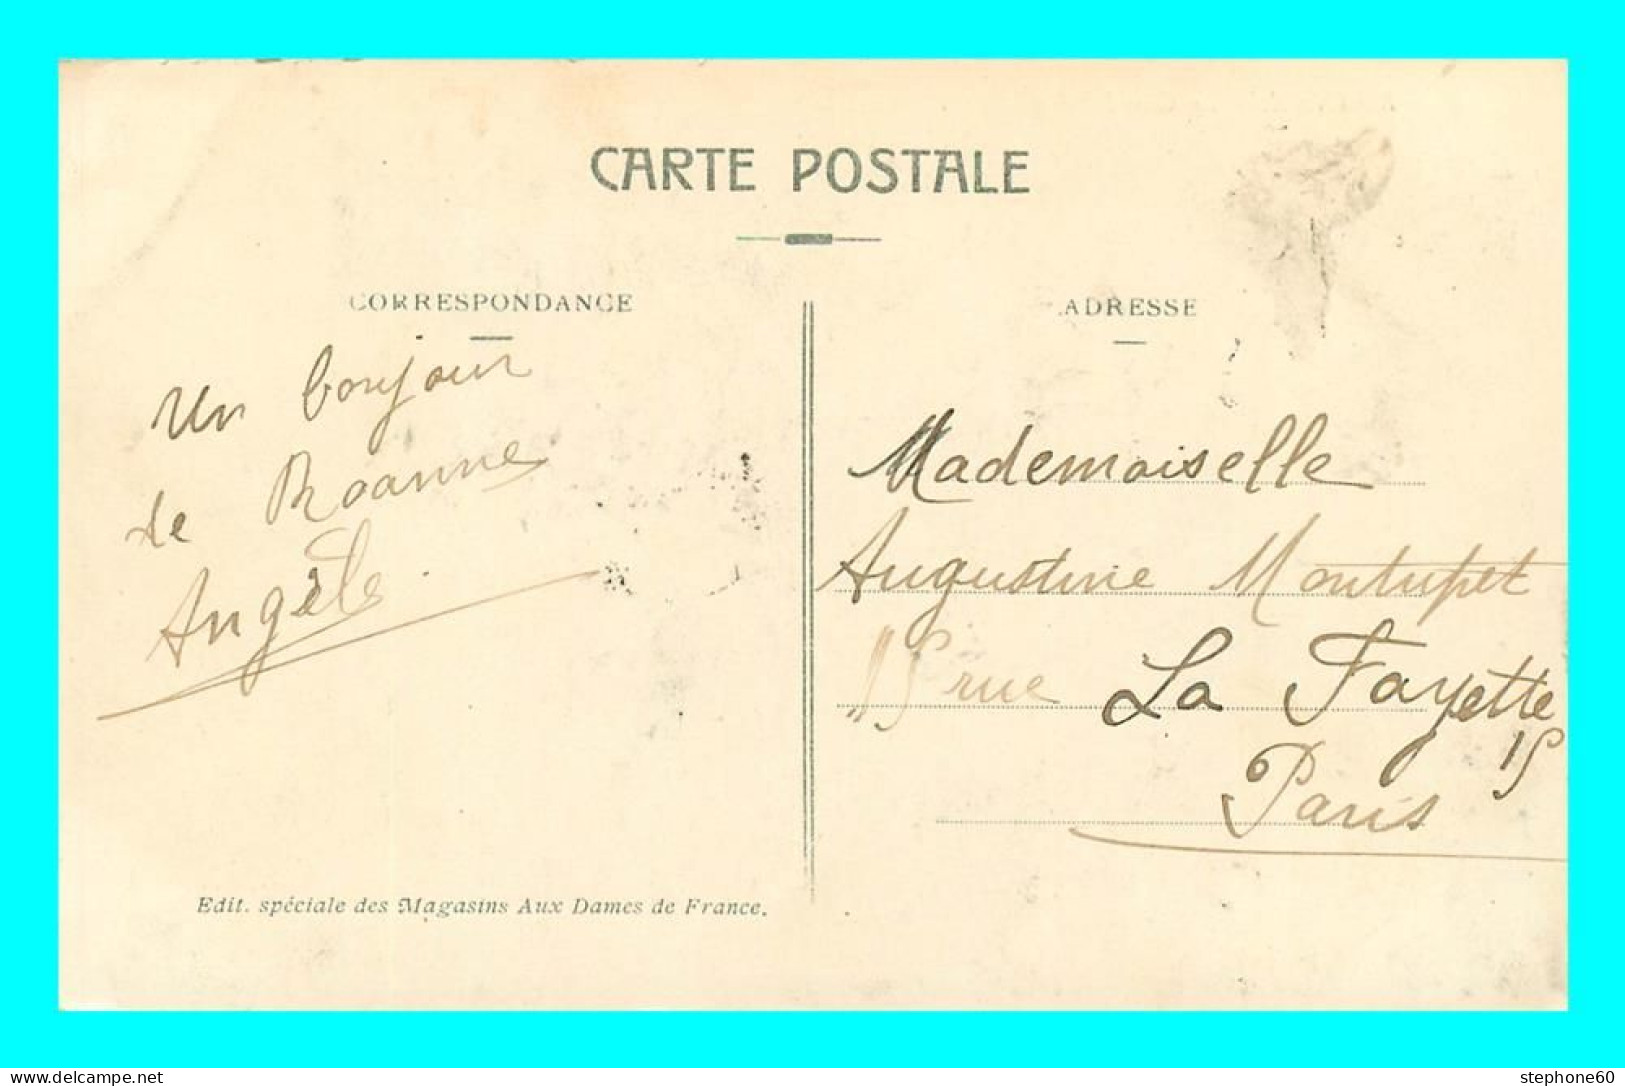 CARTE POSTALE
CORRESPONDANCE
Un bonjour
de Roanne
Angèle
Edit. spéciale des Magasins Aux Dames de France.
ADRESSE
Mademoiselle
Augustine Montupet
115 rue La Fayette
15
Paris
delcampe.net
stephone60